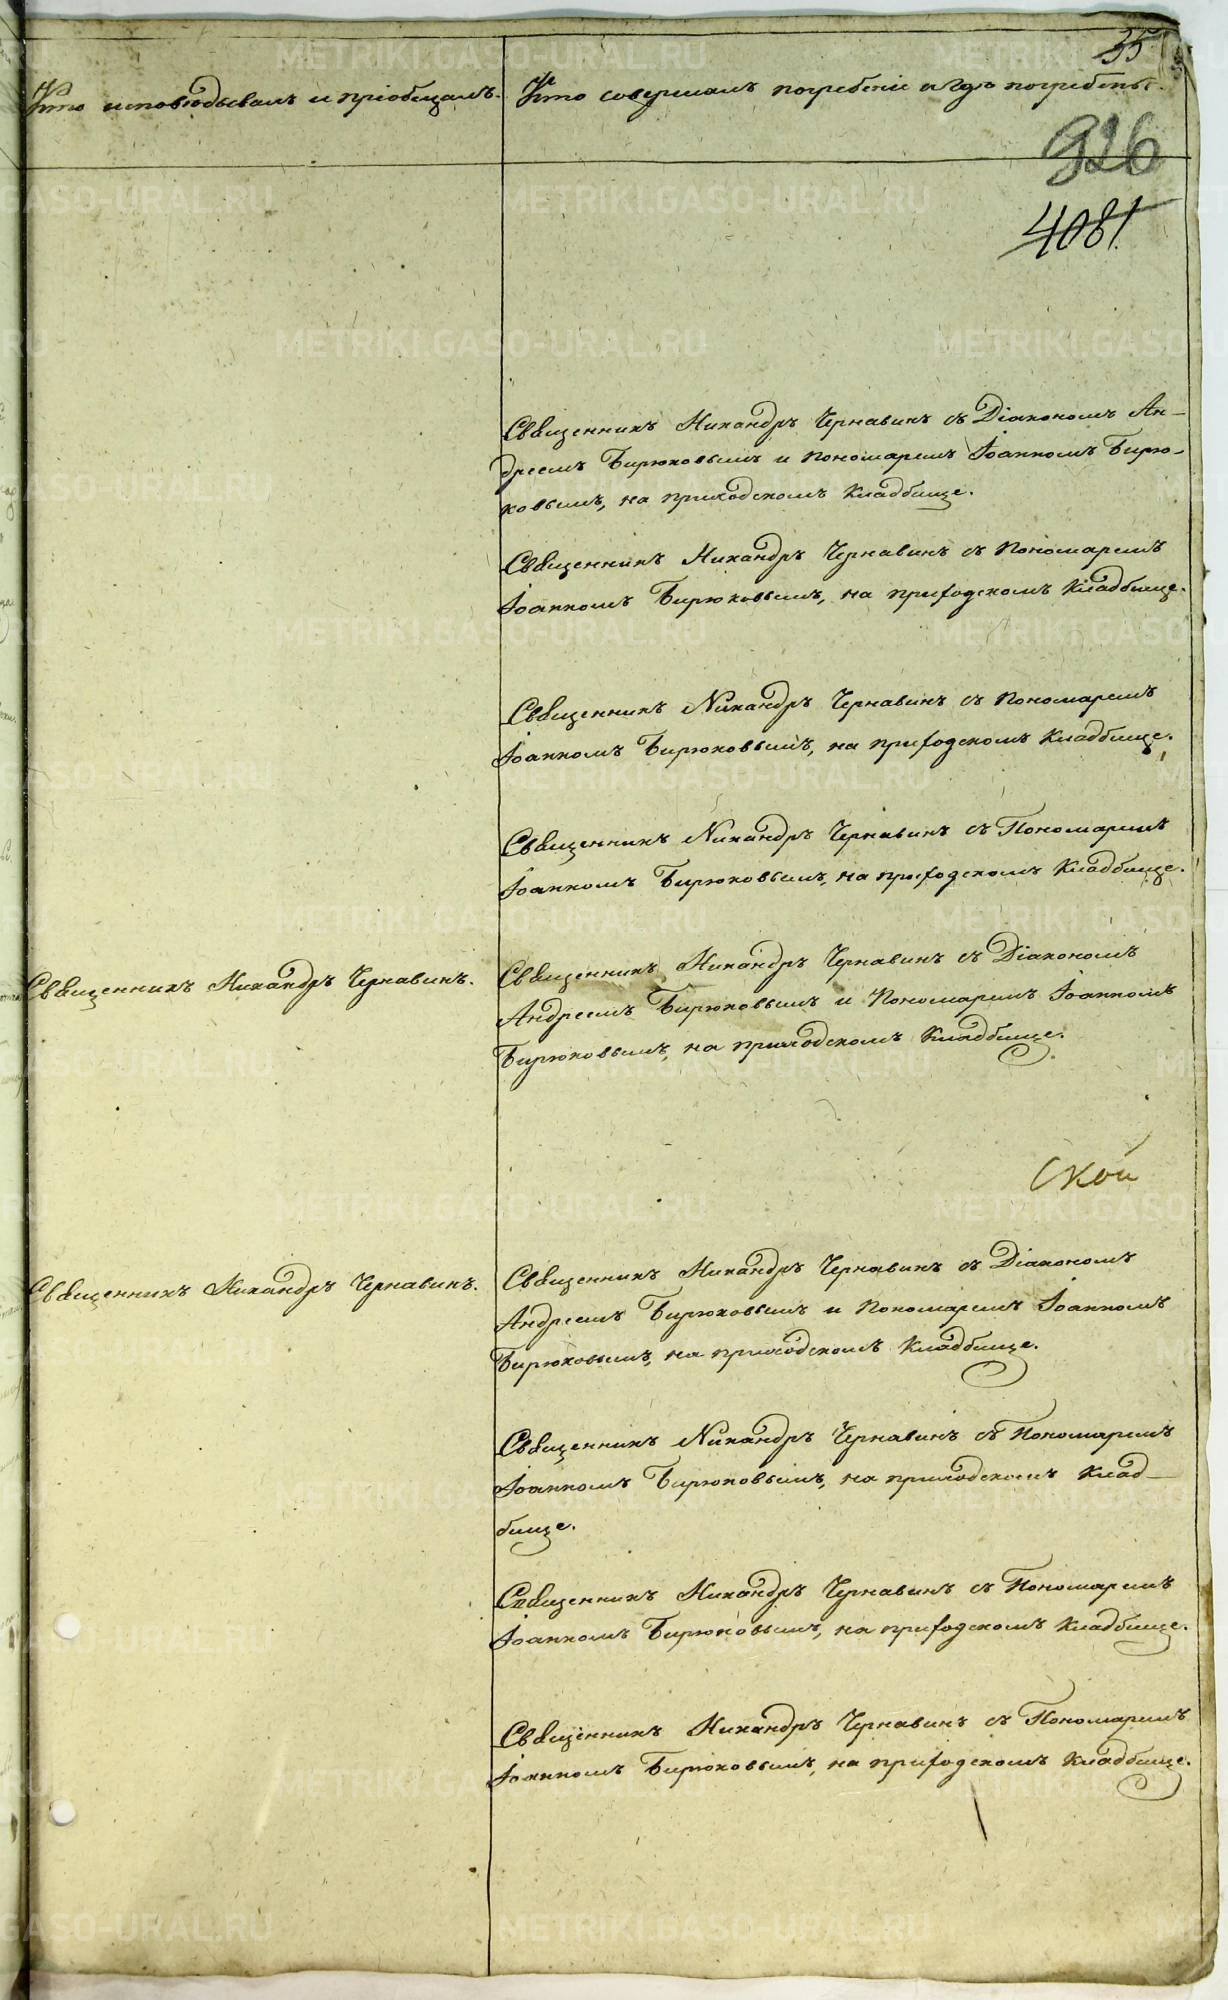 35
Кто исповѣдывалъ и пріобщалъ.
Кто совершалъ погребеніе и гдѣ погребены.
926
4081.
Священникъ Никандръ Чернавинъ съ Діакономъ Ан-
дреемъ Бирюковымъ и Пономаремъ Іоанномъ Бирю-
ковымъ, на приходскомъ кладбище.
Священникъ Никандръ Чернавинъ съ Пономаремъ
Іоанномъ Бирюковымъ, на приходскомъ кладбище.
Священникъ Никандръ Чернавинъ съ Пономаремъ
Іоанномъ Бирюковымъ, на приходскомъ кладбище.
Священникъ Никандръ Чернавинъ съ Пономаремъ
Іоанномъ Бирюковымъ, на приходскомъ кладбище.
Священникъ Никандръ Чернавинъ.
Священникъ Никандръ Чернавинъ съ Діакономъ
Андреемъ Бирюковымъ и Пономаремъ Іоанномъ
Бирюковымъ, на приходскомъ кладбище.
ской
Священникъ Никандръ Чернавинъ.
Священникъ Никандръ Чернавинъ съ Діакономъ
Андреемъ Бирюковымъ и Пономаремъ Іоанномъ
Бирюковымъ, на приходскомъ кладбище.
Священникъ Никандръ Чернавинъ съ Пономаремъ
Іоанномъ Бирюковымъ, на приходскомъ клад-
бище.
Священникъ Никандръ Чернавинъ съ Пономаремъ
Іоанномъ Бирюковымъ, на приходскомъ кладбище.
Священникъ Никандръ Чернавинъ съ Пономаремъ
Іоанномъ Бирюковымъ, на приходскомъ кладбище.
METRIKI.GASO-URAL.RU